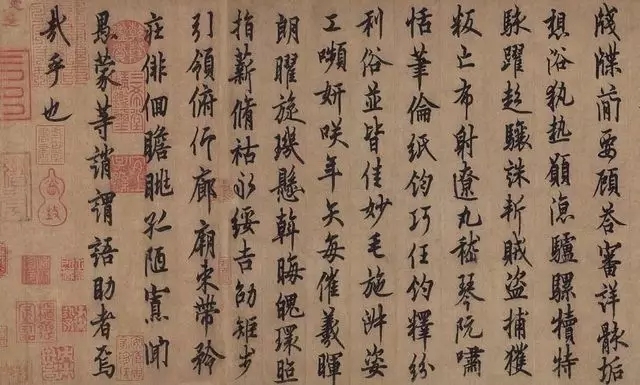 牋牒蕳要顧荅審詳骸垢
想浴執熱願涼驢騾犢特
駭躍超驤誅斬賊盜捕獲
叛亡布射遼丸嵇琴阮嘯
恬筆倫紙鈞巧任釣釋紛
利俗並皆佳妙毛施淑姿
工嚬妍咲年矢每催羲暉
朗曜旋璣懸斡晦魄環照
指薪脩祜永綏吉劭矩步
引領俯仰廊廟束帶矜
莊徘徊瞻眺孤陋寡聞
愚蒙等誚謂語助者焉
哉乎也